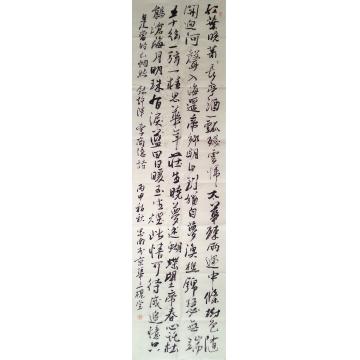 紅葉晚蕭蕭長亭酒一瓢殘雲歸太華疏雨過中條樹色隨
關迥河聲入海遥帝鄉明日到猶自夢漁樵錦瑟無端
五十弦一弦一柱思華年莊生曉夢迷蝴蝶望帝春心託杜
鵑滄海月明珠有淚藍田日暖玉生煙此情可待成追憶只
是當時已惘然 許渾 李商隱詩 丙申 秋 京華三 堂